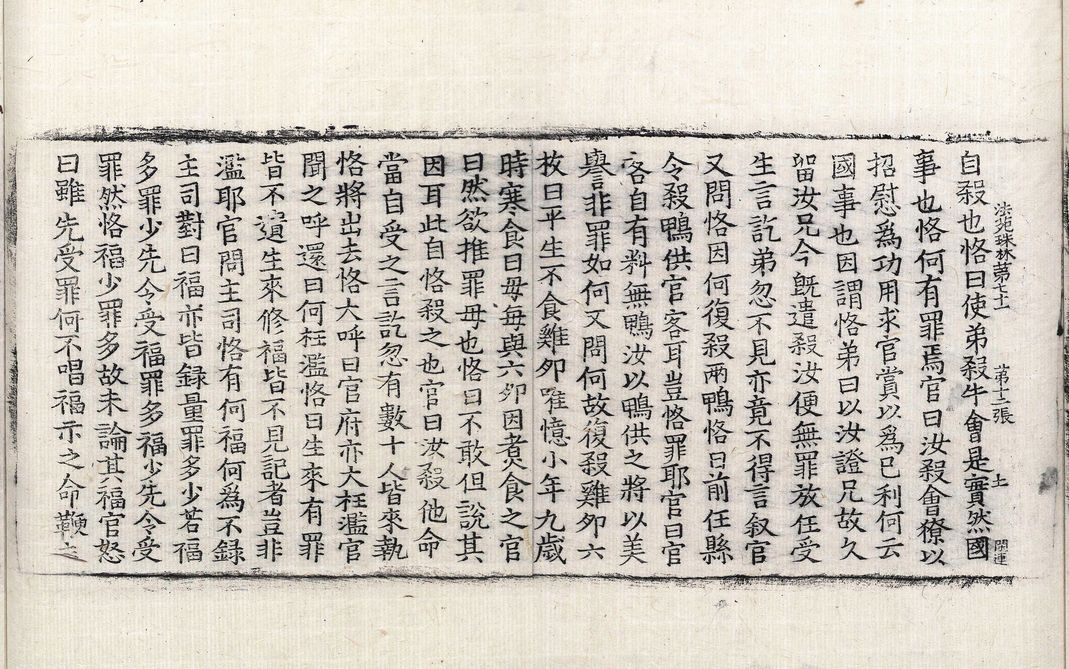 法苑珠林第七十一 第十二張 土 開運
自殺也恪曰使弟殺牛會是實然國
事也恪何有罪焉官曰汝殺會獠以
招慰爲功用求官賞以爲已利何云
國事也因謂恪弟曰以汝證兄故久
留汝兄今旣遣殺汝便無罪放任受
生言訖弟忽不見亦竟不得言叙官
又問恪因何復殺兩鴨恪曰前任縣
令殺鴨供官客耳豈恪罪耶官曰官
客自有料無鴨汝以鴨供之將以美
譽非罪如何又問何故復殺雞夘六
枚曰平生不食雞夘唯憶小年九歲
時寒食日毋每與六夘因煮食之官
曰然欲推罪毋也恪曰不敢但說其
因耳此自恪殺之也官曰汝殺他命
當自受之言訖忽有數十人皆來執
恪將出去恪大呼曰官府亦大枉濫官
聞之呼還曰何枉濫恪曰生來有罪
皆不遺生來修福皆不見記者豈非
濫耶官問主司恪有何福何爲不録
主司對曰福亦皆録量罪多少若福
多罪少先令受福罪多福少先令受
罪然恪福少罪多故未論其福官怒
曰雖先受罪何不唱福示之命鞭主